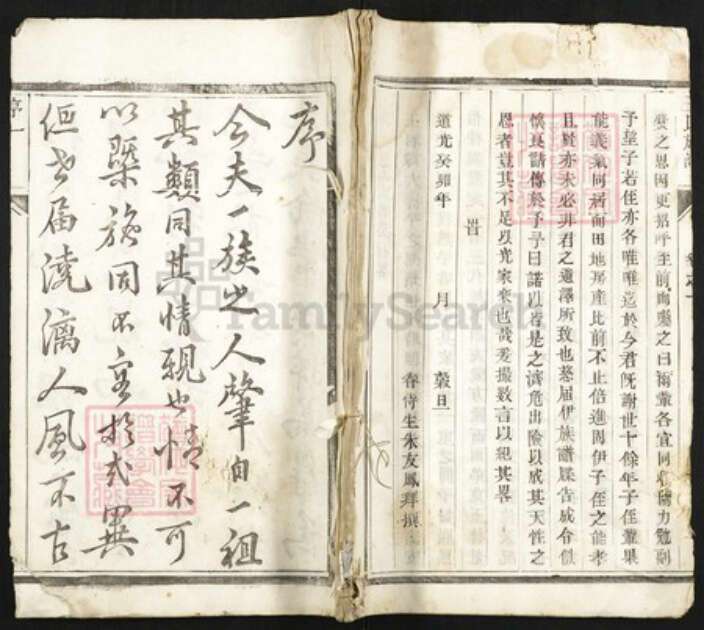 發之恩因更招呼至前而囑之曰爾輩各宜同心協力勉副
予望子若侄亦各唯唯迄於今君旣謝世十餘年子侄輩果
能義氣同孚而田地房產比前不止倍進因伊子侄之能孝
且賢亦未必非君之遺澤所致也茲届伊族譜牒告成介僦
懷哀請傳於予予曰諾以若是之濟危出險以成其天性之
恩者豈其不足以光家乘也哉爰撮數言以紀其畧
旹
道光癸卯年 月 穀旦
春侍生朱友鳳拜撰
序
今夫一族之人肇自一祖
其顙同其情親也情不可
以槩施同不容於或異
但世届澆漓人風不古
序一
FamilySearch